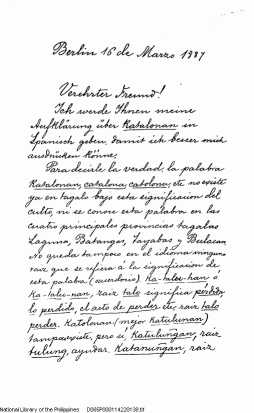 Berlin 16 de Marzo 1887
Verehrter Freund!
Ich werde Ihnen meine
Aufklärung über Katalonan in
Spanisch geben, damit ich besser mich
ausdrücken könne.
Para decirle la verdad, la palabra
Katalonan, catalona, catolona, etc no existe
ya en tagalo bajo esta significacion del
culto, ni se conoce esta palabra en las
cuatro principales provincias tagalas
Laguna, Batangas, Tayabas y Bulacan
No queda tampoco en el idioma ninguna
raiz que se refiera á la significacion de
esta palabra (sacerdocio) Ka-talu-nan ó
Ka-talu-nan, raiz talo significa pérdida,
lo perdido, el acto de perder etc, raiz talo
perder. Katolonan (mejor Katulunan)
tampoco existe, pero si, Katulungan, raiz
tulung, ayudar. Katanungan, raiz
National Library of the Philippines